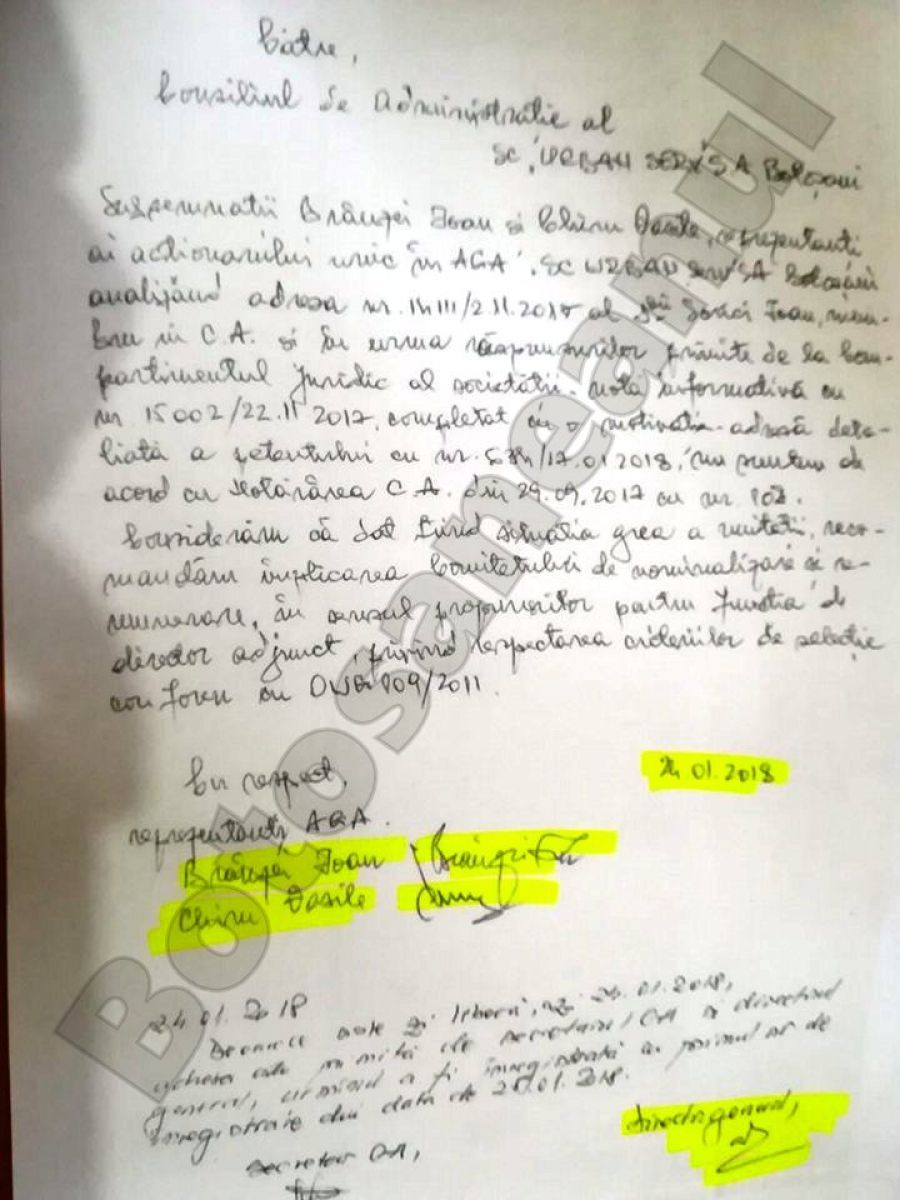 Către,
Consiliul de Administratie al
SC "URBAN SERV" SA Botoșani
Susemnatii Brânzei Ioan si Chiru Vasile, reprezentanti
ai actionarului unic în AGA SC URBAN SERV SA Botoșani
analizând adresa nr. /2.11.2017 al Ioan, mem-
bru in C.A. si în urma răspunsurilor primite de la Com-
partimentul juridic al societătii - nota informativă cu
nr 15002/22.11 2017, completat cu o motivatie - adresă deta-
liată a petentului cu nr. /17.01 2018, nu suntem de
acord cu Hotărârea C.A. din 29.09.2017 cu nr.
Considerăm că dat fiind situatia grea a unitătii, reco-
mandăm implicarea Comitetului de nominalizare si re-
munerare, în sensul propunerilor pentru functia de
director adjunct, privind respectarea criteriilor de selectie
conform cu OUG 109/2011.
Cu respect,
24.01.2018
reprezentanți AGA.
Brânzei Ioan
Chiru Vasile
24.01.2018
Deoarece este zi liberă, azi 24.01.2018,
adresa este primită de secretarul CA si directorul
general, urmând a fi înregistrată cu primul nr de
înregistrare din data de 25.01.2018.
Director general,
Secretar CA,
Botosaneanul